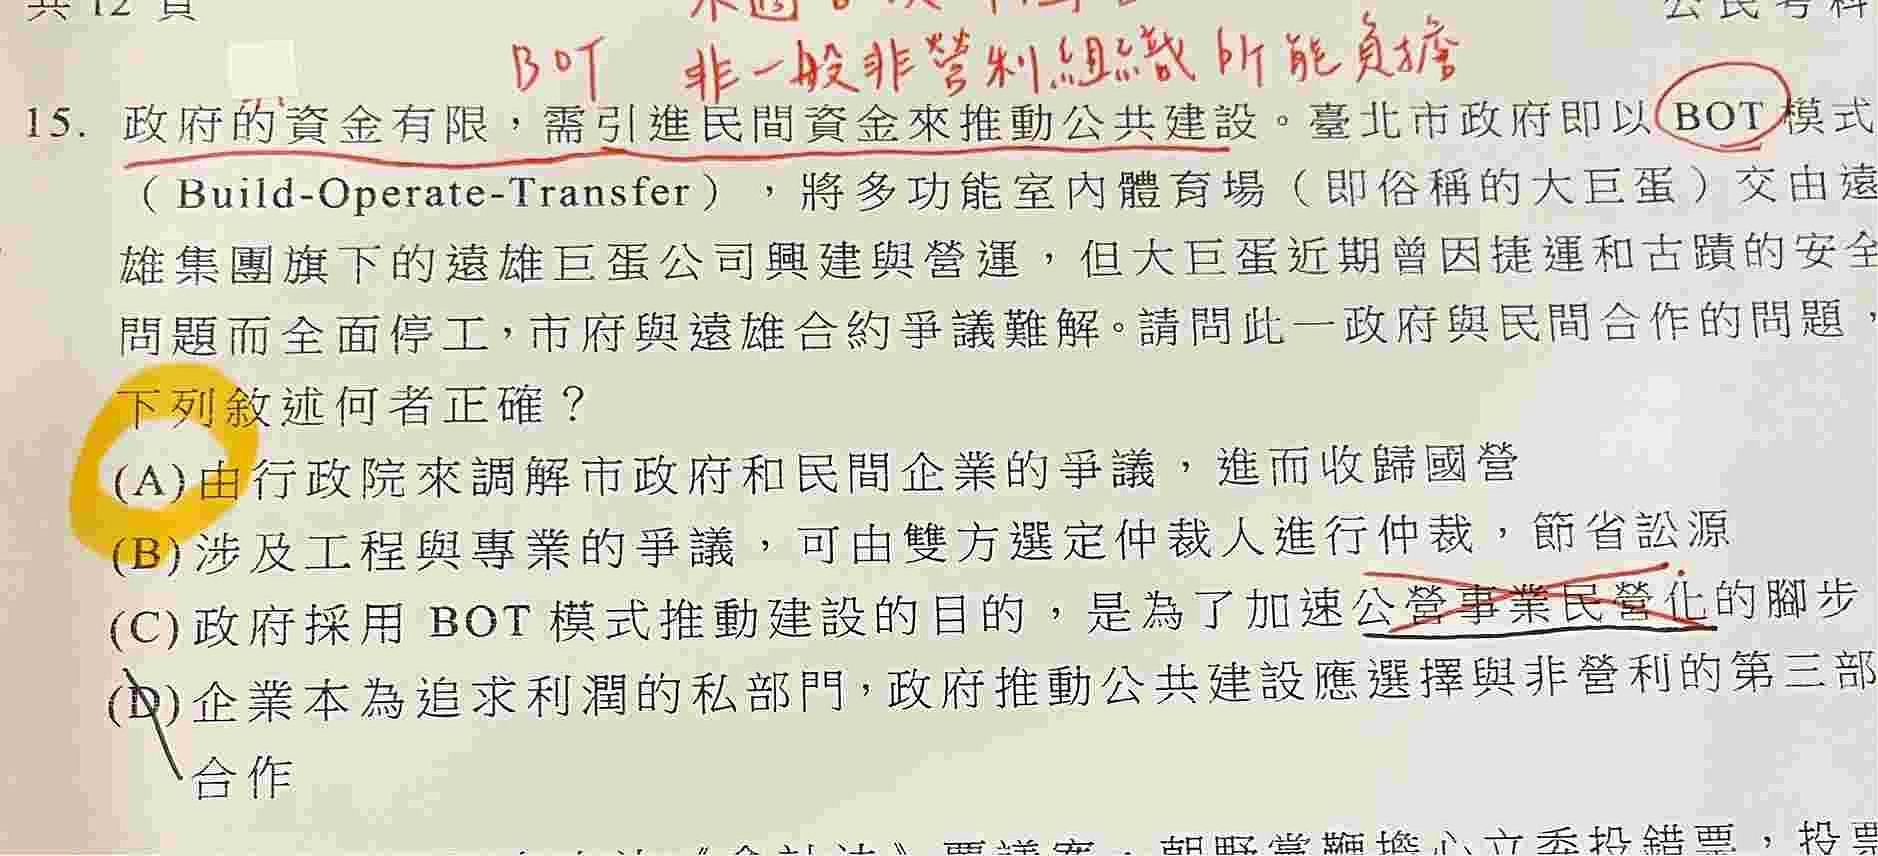 共 12 頁
公民考科
BOT 非一般非營利組織所能負擔
15. 政府的資金有限，需引進民間資金來推動公共建設。臺北市政府即以 BOT 模式
（Build-Operate-Transfer），將多功能室內體育場（即俗稱的大巨蛋）交由遠
雄集團旗下的遠雄巨蛋公司興建與營運，但大巨蛋近期曾因捷運和古蹟的安全
問題而全面停工，市府與遠雄合約爭議難解。請問此一政府與民間合作的問題，
下列敘述何者正確？
(A)由行政院來調解市政府和民間企業的爭議，進而收歸國營
(B)涉及工程與專業的爭議，可由雙方選定仲裁人進行仲裁，節省訟源
(C)政府採用 BOT 模式推動建設的目的，是為了加速公營事業民營化的腳步
(D)企業本為追求利潤的私部門，政府推動公共建設應選擇與非營利的第三部
合作
《會計法》覆議案，朝野黨鞭擔心立委投錯票，投票